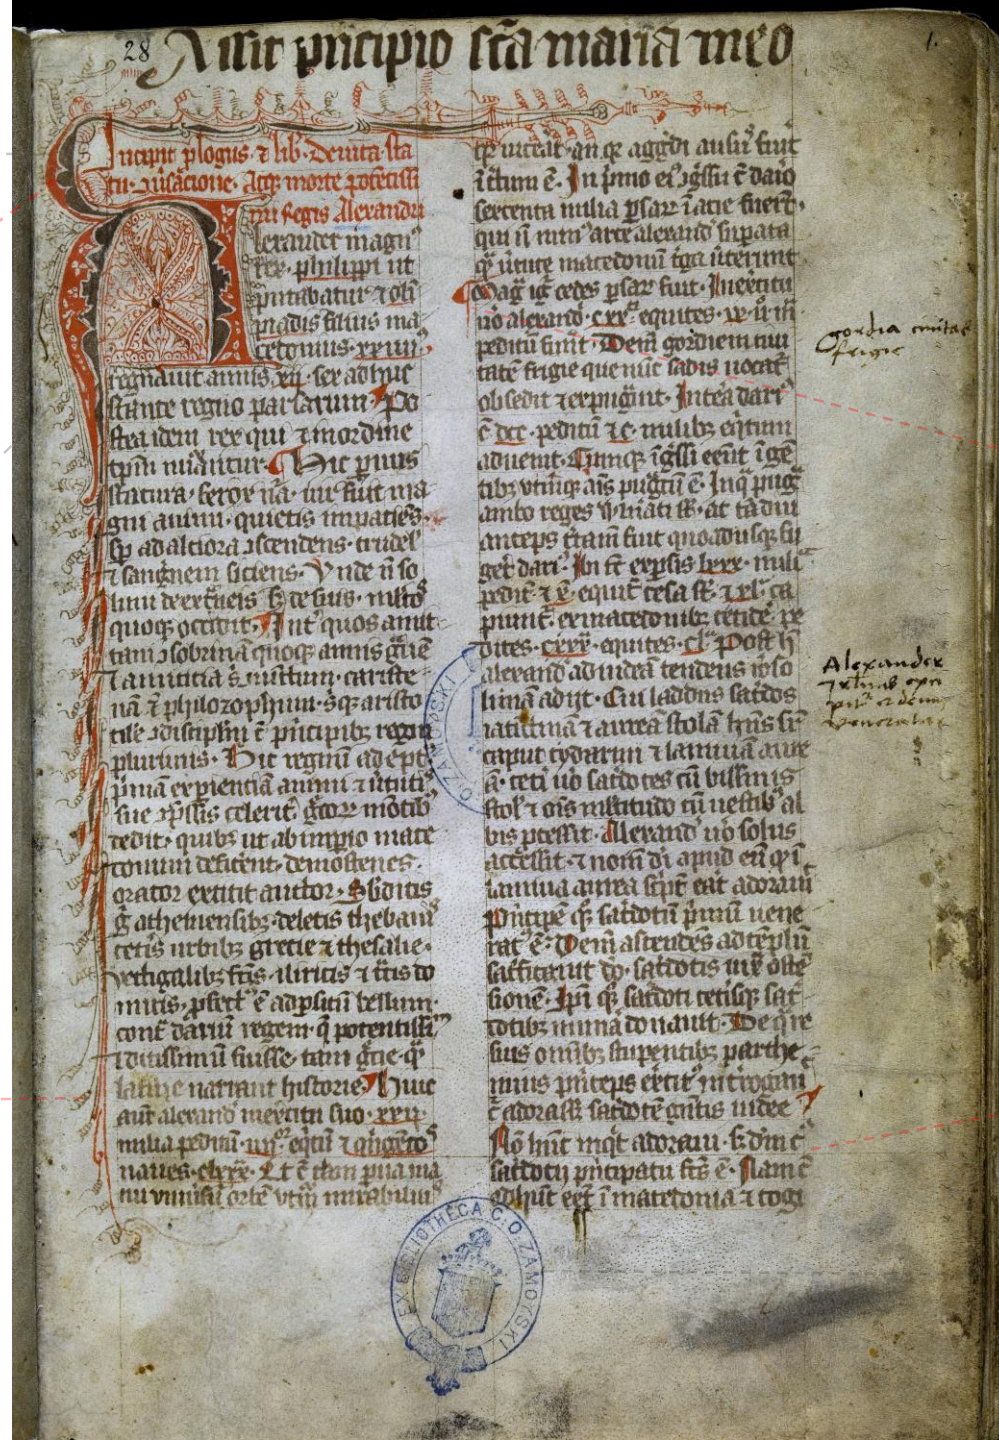 28
1.
Assit principio sc̃a maria meo
Incipit ꝓlogus ⁊ lib̾ De uita sta
tu ꝯũsacione Atqꝫ morte potentissi
mi Regis Alexandri
lexander magnꝰ
rex philippi ut
putabatur ⁊ oli
piadis filius ma
cetonius xx iiii
regnauit annis xii sex adhuc
stante regno parsarum Po
stea idem rex qui ⁊ in ordine
Hic paruus
statura ferox uir fuit ma
gni animi quietis impatiẽs
sp̃ ad altiora ꝯscendens crudel̾
⁊ sanguinem siciens Vnde nõ so
lum de ext̾neis sꝫ de suis multos
quoqꝫ occidit Int̾ quos amit
tam ꝯsobrinã quoqꝫ
⁊ amiticia cariste
nẽ ⁊ philozophum aristo
tile ꝯdiscipulũ cũ principibꝫ regni
plurimis Hic regnum adept
primã experienciã animi ⁊ uirtutis
sue
dedit quibꝫ ut ab imperio mace
donum deficerent demostenes
orator extitit auctor Subditis
g̾ atheniensibꝫ deletis thebanis
ceteris urbibꝫ grecie ⁊ thesalie
vectigalibꝫ factis iliricis ⁊ tracis do
mitis ꝓfectꝰ ẽ ad persicũ bellum
contra dariũ regem q̃ potentissi
⁊ ditissimũ fuisse tam grecie qꝫ
latine narrant historie Huic
aut̾ alexand̾ in exercitu suo xxii
milia peditum iiiiᵒʳ equitũ ⁊ quingẽtos
naues clxxx Et cũ tam parua ma
nu vniũsũ orbẽ utrum mirabiliꝰ
uicerit an qꝫ aggredi ausus fuit
ictum ẽ In primo eiꝰ ꝯg̃ssu cũ dario
sexcenta milia persarũ in acie fuerũt
qui nõ minꝰ arte alexand̾ superata
qꝫ uirtute macedonũ t̾ga uerterunt
Mag̃ ig̾ cedes persarũ fuit In exercitu
uo alexand̾ cxxᵗⁱ equites ix uo mi
peditũ fuerũt Dein gordiem ciui
tatẽ frigie que nũc sardis uocat̾
obsedit ⁊ expugnauit Interea dari
cũ dcc peditũ ⁊ c milibꝫ equitum
aduenit Cumqꝫ ꝯg̃ssi eẽnt ingẽ
tibꝫ utrimqꝫ animis pug̃tũ ẽ In qua pug̃
ambo reges vuln̾ati st̾ at tã diu
anceps fuit quoadusqꝫ fu
geret dari Ibi
peditum ⁊ x equitũ cesa st̾ ⁊ xl ca
ptiui ex macedonibꝫ cecidẽ pe
dites cxxx equites cl Post hec
alexand̾ ad iudeã tendens ieroso
limã adijt Cui Iaddus sac̾dos
iacinctinã ⁊ aurea stolã habens sup̾
caput cydarim ⁊ laminã aure
ã ceteri uo sac̾dotes cũ bissinis
stol̾ ⁊ oms multitudo cũ uestibꝫ al
bis ꝓcessit Alexand̾ uo solus
accessit ⁊ nomẽ dei apud eũ qꝫ in
lamina aurea scriptũ erat adorauit
principẽ qꝫ sac̾dotũ primũ uene
ratꝰ ẽ Dein ascendẽs ad tẽplũ
sac̾ficauit deo sac̾dotis iuxta ostẽ
sionẽ Ipsi qꝫ sac̾doti ceterisqꝫ sac̾
dotibꝫ munera donauit De qua re
suis omibꝫ stupentibꝫ parthe
nius princeps exercitꝰ interrogauit
cur adorasset sac̾dotẽ gentis iudee
Nõ hunc inquit adoraui sꝫ deum cuiꝰ
sac̾dotij principatu functꝰ ẽ Nam cũ
adhuc eẽm in macedonia ⁊ cogi
gordia ciuitas
frigie
Alexander
veneratur
EX BIBLIOTHECA C. O. ZAMOYSKI
O. ZAMOYSKI